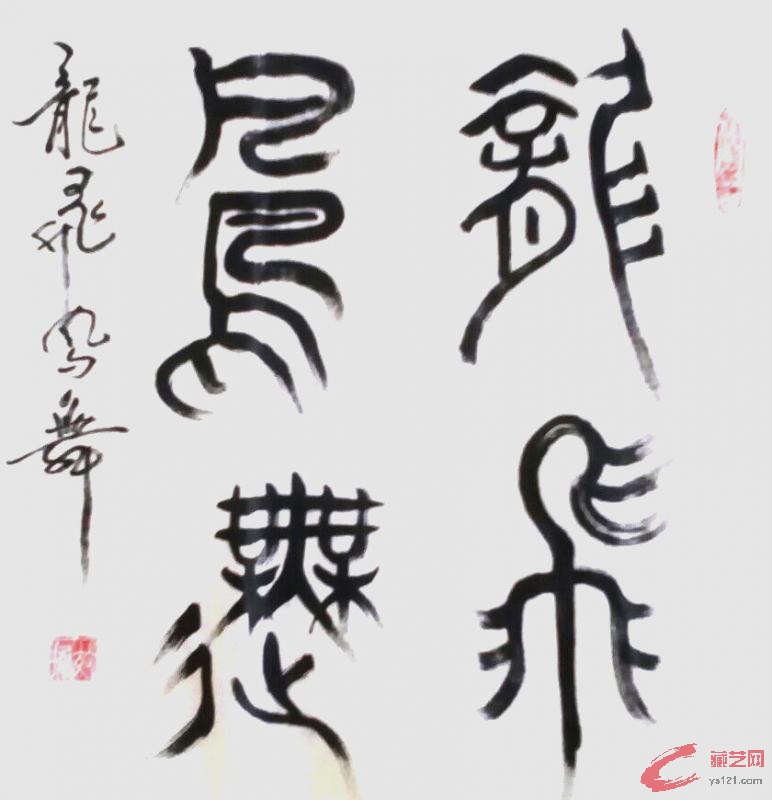 龍飛
鳳舞
龍飛鳳舞
藏艺网
ys121.com